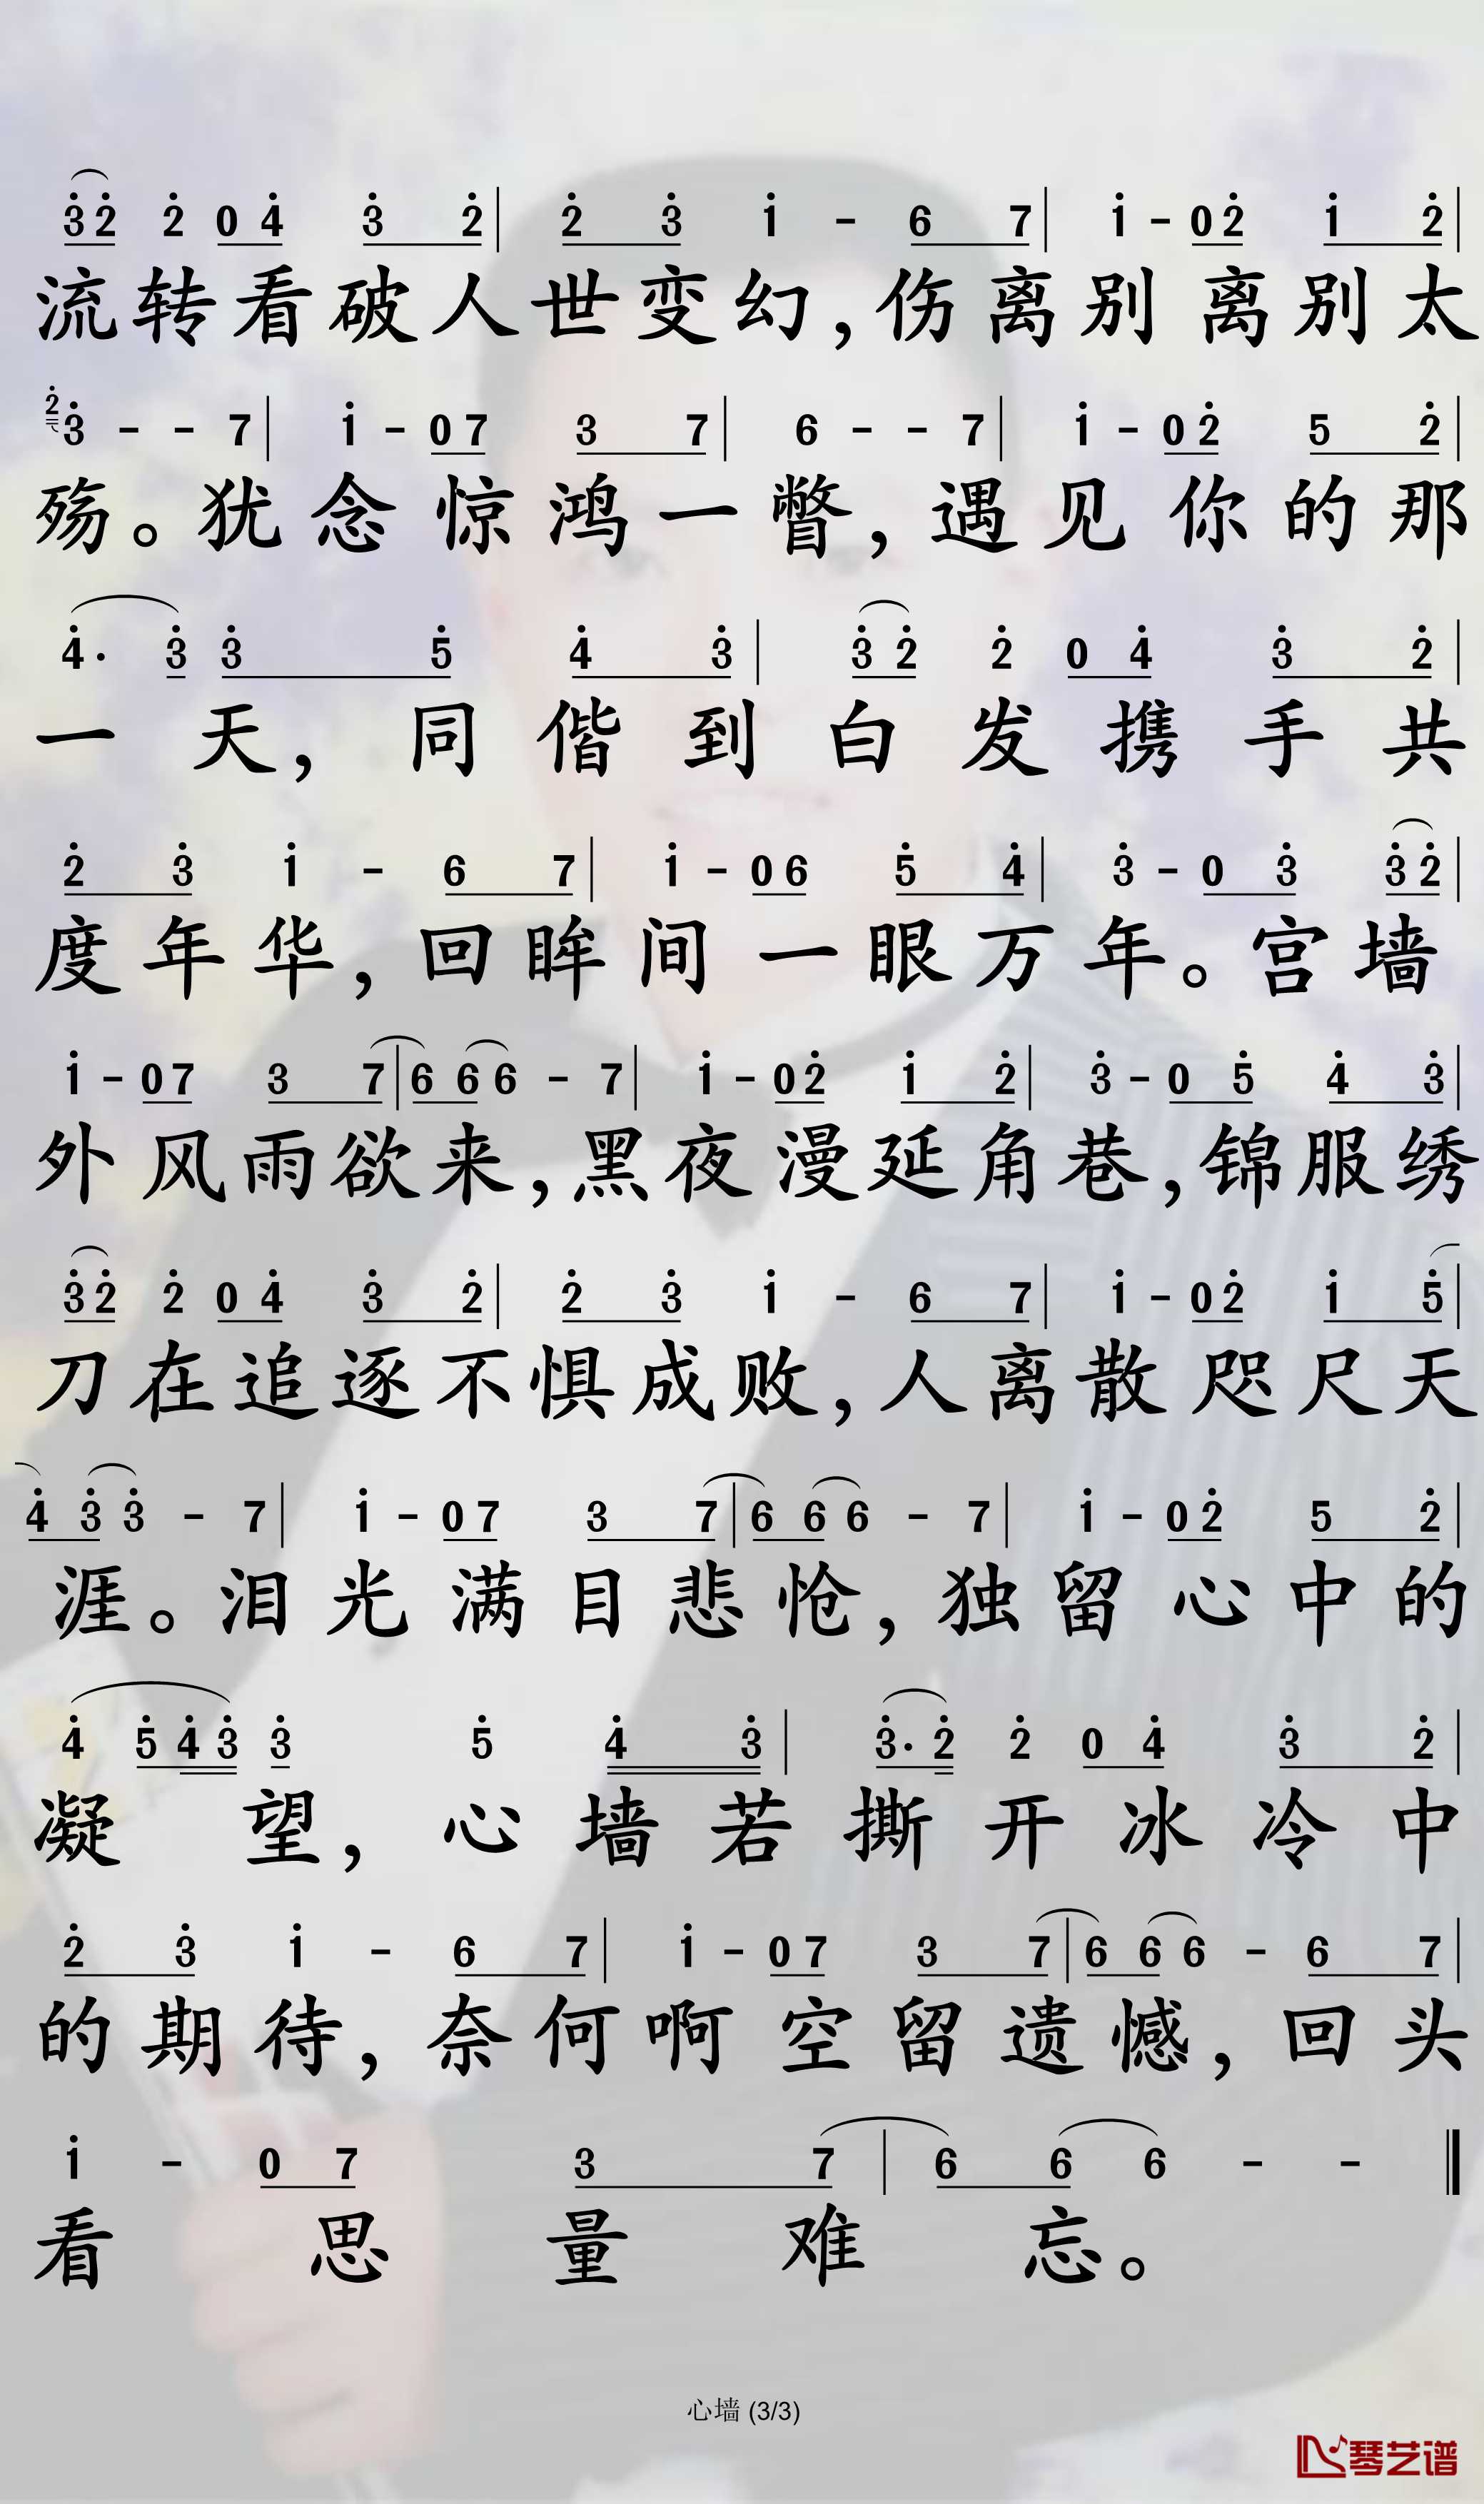 3 2 2 0 4 3 2 | 2 3 1 - 6 7 | 1 - 0 2 1 2 |
流转看破人世变幻，伤离别离别太
2 3 - - 7 | 1 - 0 7 3 7 | 6 - - 7 | 1 - 0 2 5 2 |
殇。犹念惊鸿一瞥，遇见你的那
4· 3 3 5 4 3 | 3 2 2 0 4 3 2 |
一天，同偕到白发携手共
2 3 1 - 6 7 | 1 - 0 6 5 4 | 3 - 0 3 3 2 |
度年华，回眸间一眼万年。宫墙
1 - 0 7 3 7 | 6 6 6 - 7 | 1 - 0 2 1 2 | 3 - 0 5 4 3 |
外风雨欲来，黑夜漫延角巷，锦服绣
3 2 2 0 4 3 2 | 2 3 1 - 6 7 | 1 - 0 2 1 5 |
刀在追逐不惧成败，人离散咫尺天
4 3 3 - 7 | 1 - 0 7 3 7 | 6 6 6 - 7 | 1 - 0 2 5 2 |
涯。泪光满目悲怆，独留心中的
4 5 4 3 3 5 4 3 | 3· 2 2 0 4 3 2 |
凝望，心墙若撕开冰冷中
2 3 1 - 6 7 | 1 - 0 7 3 7 | 6 6 6 - 6 7 |
的期待，奈何啊空留遗憾，回头
1 - 0 7 3 7 | 6 6 6 - - ‖
看思量难忘。
心墙 (3/3)
琴艺谱